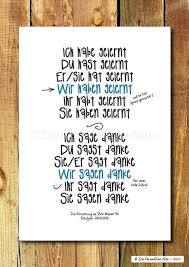 Ich habe gelernt
Du hast gelernt
Er/sie hat gelernt
Wir haben gelernt
Ihr habt gelernt
Sie haben gelernt
Ich sage danke
Du sagst danke
Sie/Er sagt danke
Wir sagen danke
Ihr sagt danke
Sie sagen danke
Zur Erinnerung an Ihre Klasse
Schuljahr 2014/2015